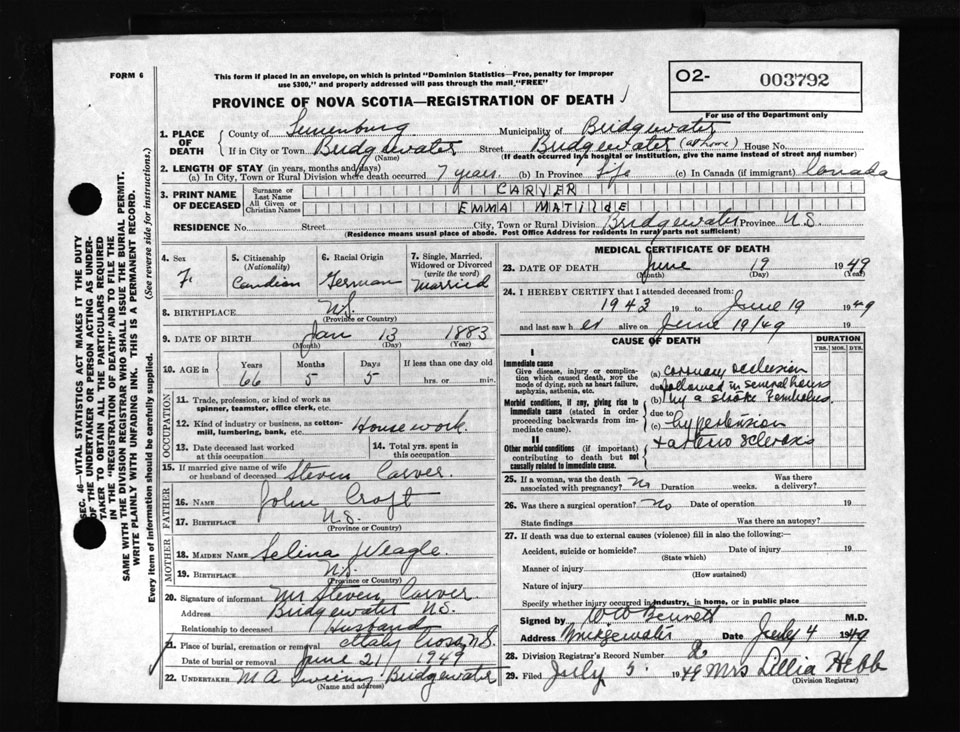 FORM 6
This form if placed in an envelope, on which is printed "Dominion Statistics—Free, penalty for improper
use $300," and properly addressed will pass through the mail "FREE"
O2- 003792
For use of the Department only
PROVINCE OF NOVA SCOTIA—REGISTRATION OF DEATH
1. PLACE OF DEATH
County of Lunenburg Municipality of Bridgewater
If in City or Town Bridgewater Street Bridgewater (at home) House No.
(Name) (If death occurred in a hospital or institution, give the name instead of street and number)
2. LENGTH OF STAY (in years, months and days)
(a) In City, Town or Rural Division where death occurred 7 years. (b) In Province Life (c) In Canada (if immigrant) Canada
3. PRINT NAME OF DECEASED
Surname or Last Name CARVER
All Given or Christian Names EMMA MATILDE
RESIDENCE No. Street City, Town or Rural Division Bridgewater Province N.S.
(Residence means usual place of abode. Post Office Address for residents in rural parts not sufficient)
4. Sex
F.
5. Citizenship
(Nationality)
Candian
6. Racial Origin
German
7. Single, Married, Widowed or Divorced
(write the word)
Married
8. BIRTHPLACE N.S.
(Province or Country)
9. DATE OF BIRTH Jan 13 1883
(Month) (Day) (Year)
10. AGE IN Years Months Days If less than one day old
66 5 5 hrs. or min.
OCCUPATION
11. Trade, profession, or kind of work as
spinner, teamster, office clerk, etc.
12. Kind of industry or business, as cotton-
mill, lumbering, bank, etc. Housework.
13. Date deceased last worked
at this occupation
14. Total yrs. spent in
this occupation
15. If married give name of wife
or husband of deceased Steven Carver.
FATHER
16. NAME John Croft
17. BIRTHPLACE N.S.
(Province or Country)
MOTHER
18. MAIDEN NAME Selina Weagle.
19. BIRTHPLACE N.S.
(Province or Country)
20. Signature of informant Mr Steven Carver.
Address Bridgewater N.S.
Relationship to deceased Husband
21. Place of burial, cremation or removal Italy Cross, N.S.
Date of burial or removal June 21 1949
22. UNDERTAKER M A Bridgewater
(Name and address)
MEDICAL CERTIFICATE OF DEATH
23. DATE OF DEATH June 19 1949
(Month) (Day) (Year)
24. I HEREBY CERTIFY that I attended deceased from:
1943 19 to June 19 1949
and last saw her alive on June 19/49 19
CAUSE OF DEATH
DURATION
YRS. MOS. DYS.
I
Immediate cause
Give disease, injury or complica-
tion which caused death, not the
mode of dying, such as heart failure,
asphyxia, asthenia, etc.
Morbid conditions, if any, giving rise to
immediate cause (stated in order
proceeding backwards from im-
mediate cause).
II
Other morbid conditions (if important)
contributing to death but not
causally related to immediate cause.
(a) coronary occlusion
due to followed in several hours
(b) by a stroke
due to
(c) hypertension
+ arterio sclerosis
25. If a woman, was the death
associated with pregnancy? No Duration weeks. Was there
a delivery?
26. Was there a surgical operation? No Date of operation 19
State findings Was there an autopsy?
27. If death was due to external causes (violence) fill in also the following:
Accident, suicide or homicide? Date of injury 19
(State which)
Manner of injury
(How sustained)
Nature of injury
Specify whether injury occurred in industry, in home, or in public place
Signed by W W Bennett M.D.
Address Bridgewater Date July 4 1949
28. Division Registrar's Record Number
29. Filed July 5 1949 Mrs Lillia Hebb
(Division Registrar)
SEC. 46—VITAL STATISTICS ACT MAKES IT THE DUTY
OF THE UNDERTAKER OR PERSON ACTING AS UNDER-
TAKER TO OBTAIN ALL THE PARTICULARS REQUIRED
IN THE "REGISTRATION OF DEATH" AND TO FILE THE
SAME WITH THE DIVISION REGISTRAR WHO SHALL ISSUE THE BURIAL PERMIT.
WRITE PLAINLY WITH UNFADING INK. THIS IS A PERMANENT RECORD.
Every item of information should be carefully supplied. (See reverse side for instructions.)